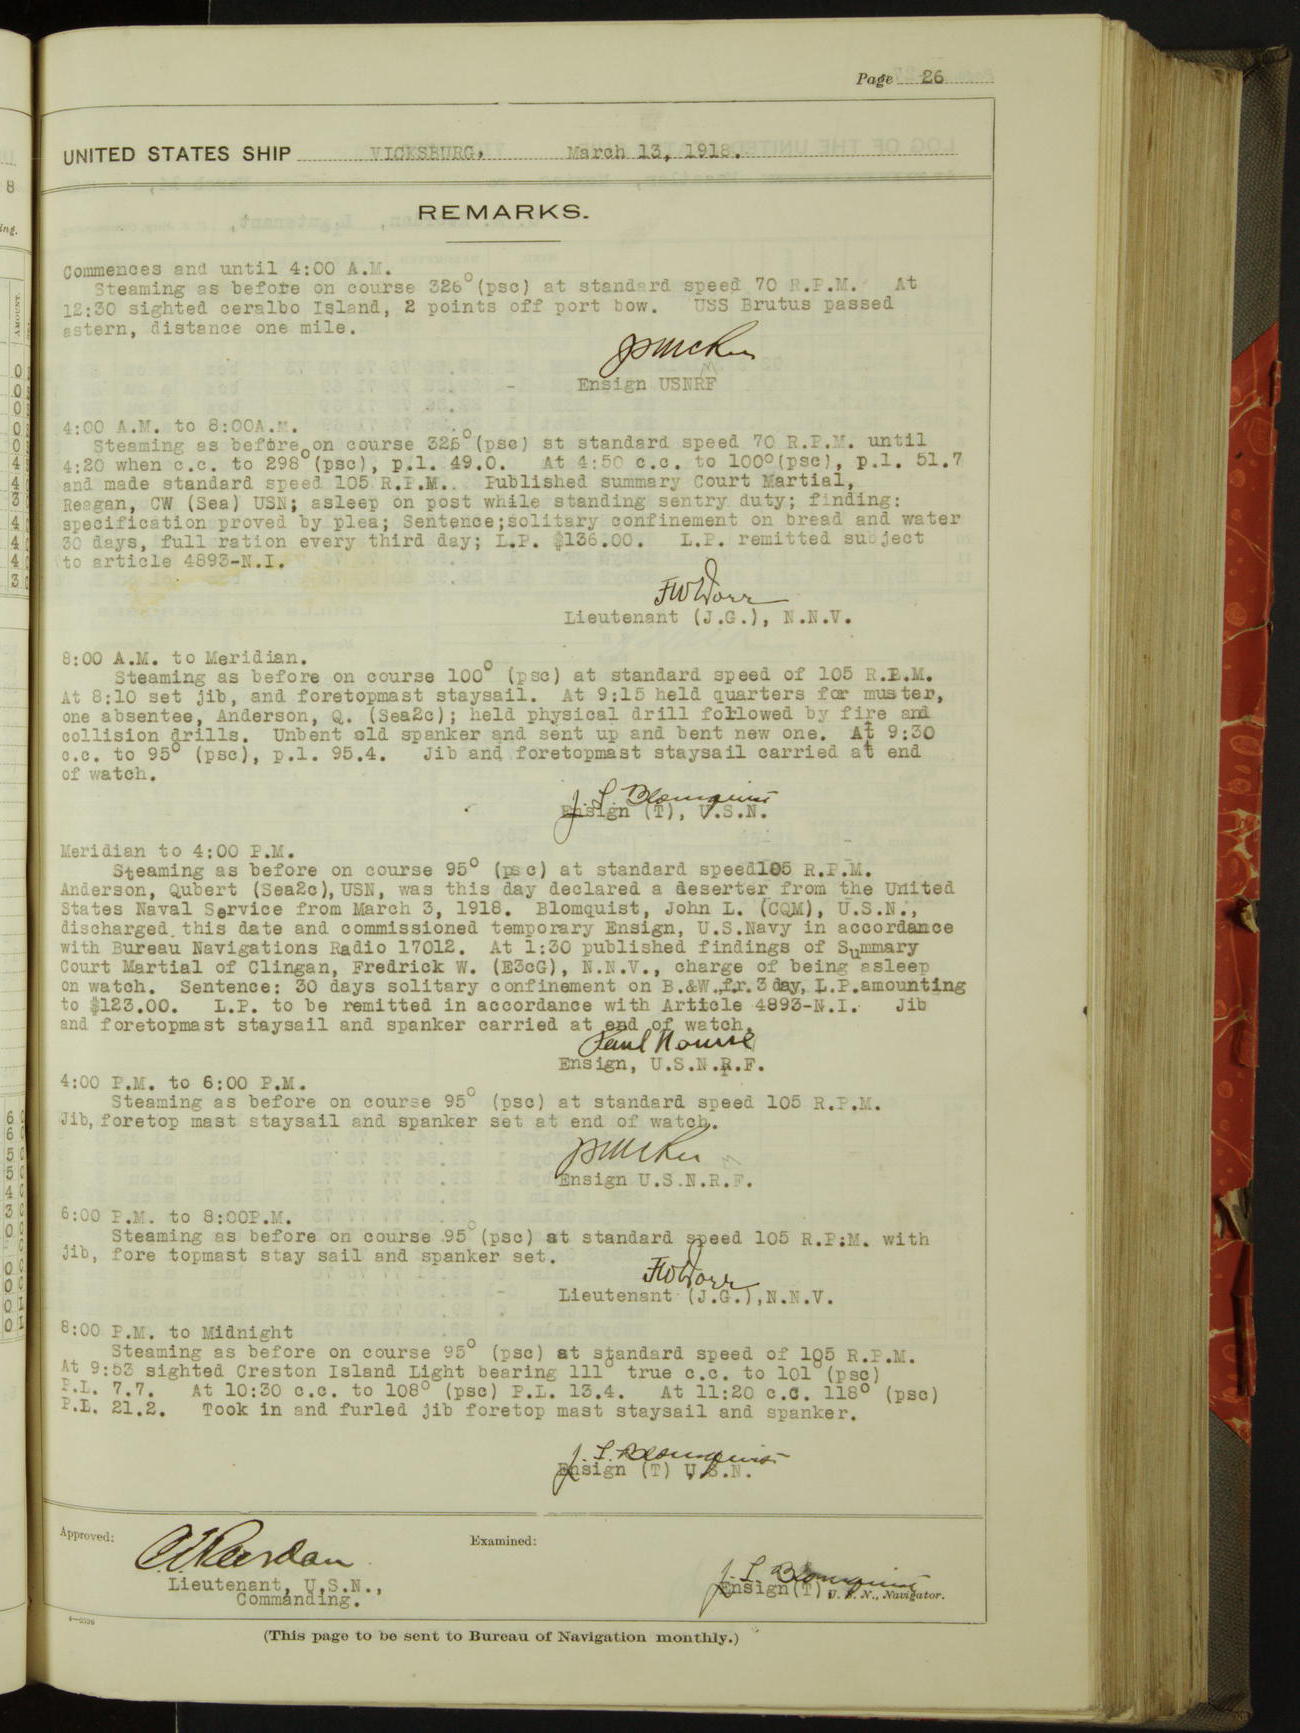 Page 26
UNITED STATES SHIP VICKSBURG, March 13, 1918.
REMARKS.
Commences and until 4:00 A.M.
Steaming as before on course 326° (psc) at standard speed 70 R.P.M. At
12:30 sighted ceralbo Island, 2 points off port bow. USS Brutus passed
astern, distance one mile.
Ensign USNRF
4:00 A.M. to 8:00A.M.
Steaming as before on course 326° (psc) st standard speed 70 R.P.M. until
4:20 when c.c. to 298° (psc), p.l. 49.0. At 4:50 c.c. to 100° (psc), p.l. 51.7
and made standard speed 105 R.P.M. Published summary Court Martial,
Reagan, CW (Sea) USN; asleep on post while standing sentry duty; finding:
specification proved by plea; Sentence;solitary confinement on bread and water
30 days, full ration every third day; L.P. $136.00. L.P. remitted subject
to article 4893-N.I.
FWDorr
Lieutenant (J.G.), N.N.V.
8:00 A.M. to Meridian.
Steaming as before on course 100° (psc) at standard speed of 105 R.P.M.
At 8:10 set jib, and foretopmast staysail. At 9:15 held quarters for muster,
one absentee, Anderson, Q. (Sea2c); held physical drill followed by fire and
collision drills. Unbent old spanker and sent up and bent new one. At 9:30
c.c. to 95° (psc), p.l. 95.4. Jib and foretopmast staysail carried at end
of watch.
J. L. Blomquist
Ensign (T), U.S.N.
Meridian to 4:00 P.M.
Steaming as before on course 95° (psc) at standard speed105 R.P.M.
Anderson, Qubert (Sea2c), USN, was this day declared a deserter from the United
States Naval Service from March 3, 1918. Blomquist, John L. (CQM), U.S.N.,
discharged this date and commissioned temporary Ensign, U.S.Navy in accordance
with Bureau Navigations Radio 17012. At 1:30 published findings of Summary
Court Martial of Clingan, Fredrick W. (E3cG), N.N.V., charge of being asleep
on watch. Sentence: 30 days solitary confinement on B.&W.,f.r. 3 day, L.P.amounting
to $123.00. L.P. to be remitted in accordance with Article 4893-N.I. Jib
and foretopmast staysail and spanker carried at end of watch.
Ensign, U.S.N.R.F.
4:00 P.M. to 6:00 P.M.
Steaming as before on course 95° (psc) at standard speed 105 R.P.M.
Jib, foretop mast staysail and spanker set at end of watch.
Ensign U.S.N.R.F.
6:00 P.M. to 8:00P.M.
Steaming as before on course 95° (psc) at standard speed 105 R.P.M. with
jib, fore topmast stay sail and spanker set.
FWDorr
Lieutenant (J.G.),N.N.V.
8:00 P.M. to Midnight
Steaming as before on course 95° (psc) at standard speed of 105 R.P.M.
At 9:53 sighted Creston Island Light bearing 111° true c.c. to 101° (psc)
P.L. 7.7. At 10:30 c.c. to 108° (psc) P.L. 13.4. At 11:20 c.c. 118° (psc)
P.L. 21.2. Took in and furled jib foretop mast staysail and spanker.
J. L. Blomquist
Ensign (T) U.S.N.
Approved: Examined:
Lieutenant, U.S.N.,
Commanding.
J. L. Blomquist
Ensign(T), U. S. N., Navigator.
(This page to be sent to Bureau of Navigation monthly.)